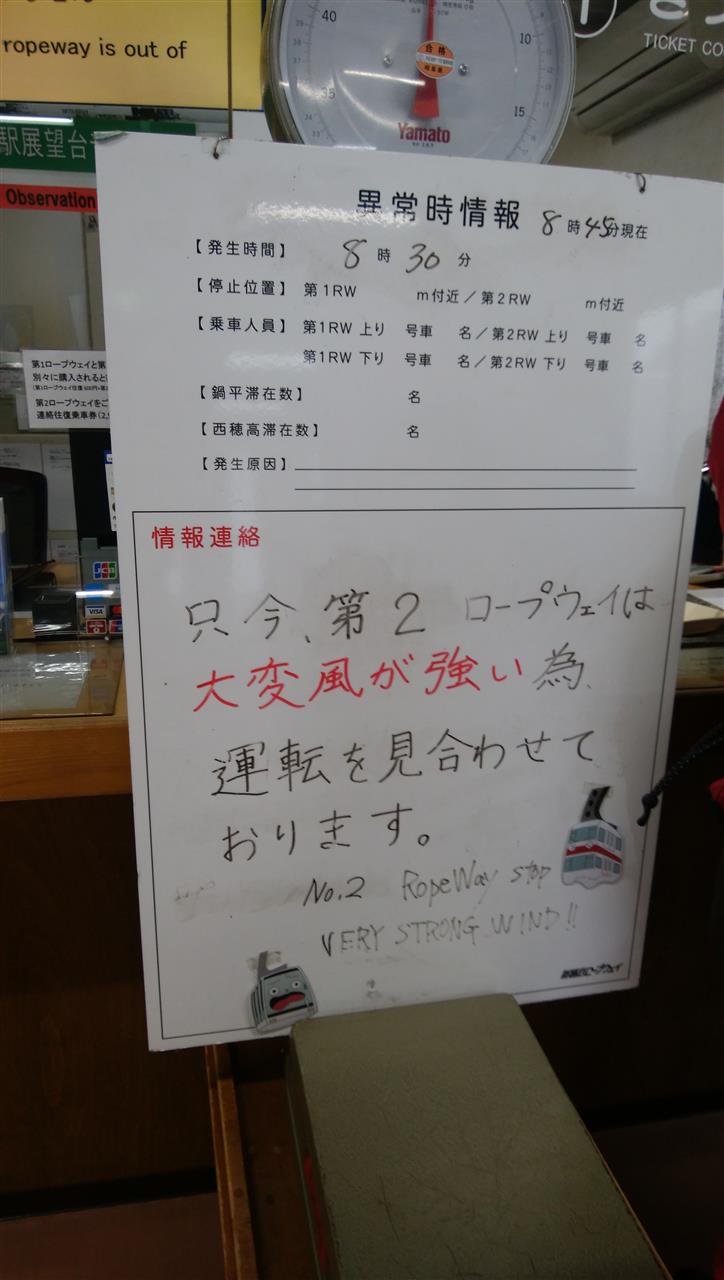 ropeway is out of
40
10
35
15
合格
Yamato
TICKET CO
駅展望台
Observation
異常時情報 8時45分現在
【発生時間】 8時30分
【停止位置】 第1RW m付近／第2RW m付近
【乗車人員】 第1RW 上り 号車 名／第2RW 上り 号車 名
第1RW 下り 号車 名／第2RW 下り 号車 名
【鍋平滞在数】 名
【西穂高滞在数】 名
【発生原因】
第1ロープウェイと第
別々に購入されると
第2ロープウェイをご
連絡往復乗車券(2,
JCB
VISA
情報連絡
只今、第2 ロープウェイは
大変風が強い為、
運転を見合わせて
おります。
No.2 RopeWay stop
VERY STRONG WIND!!
新穂高ロープウェイ